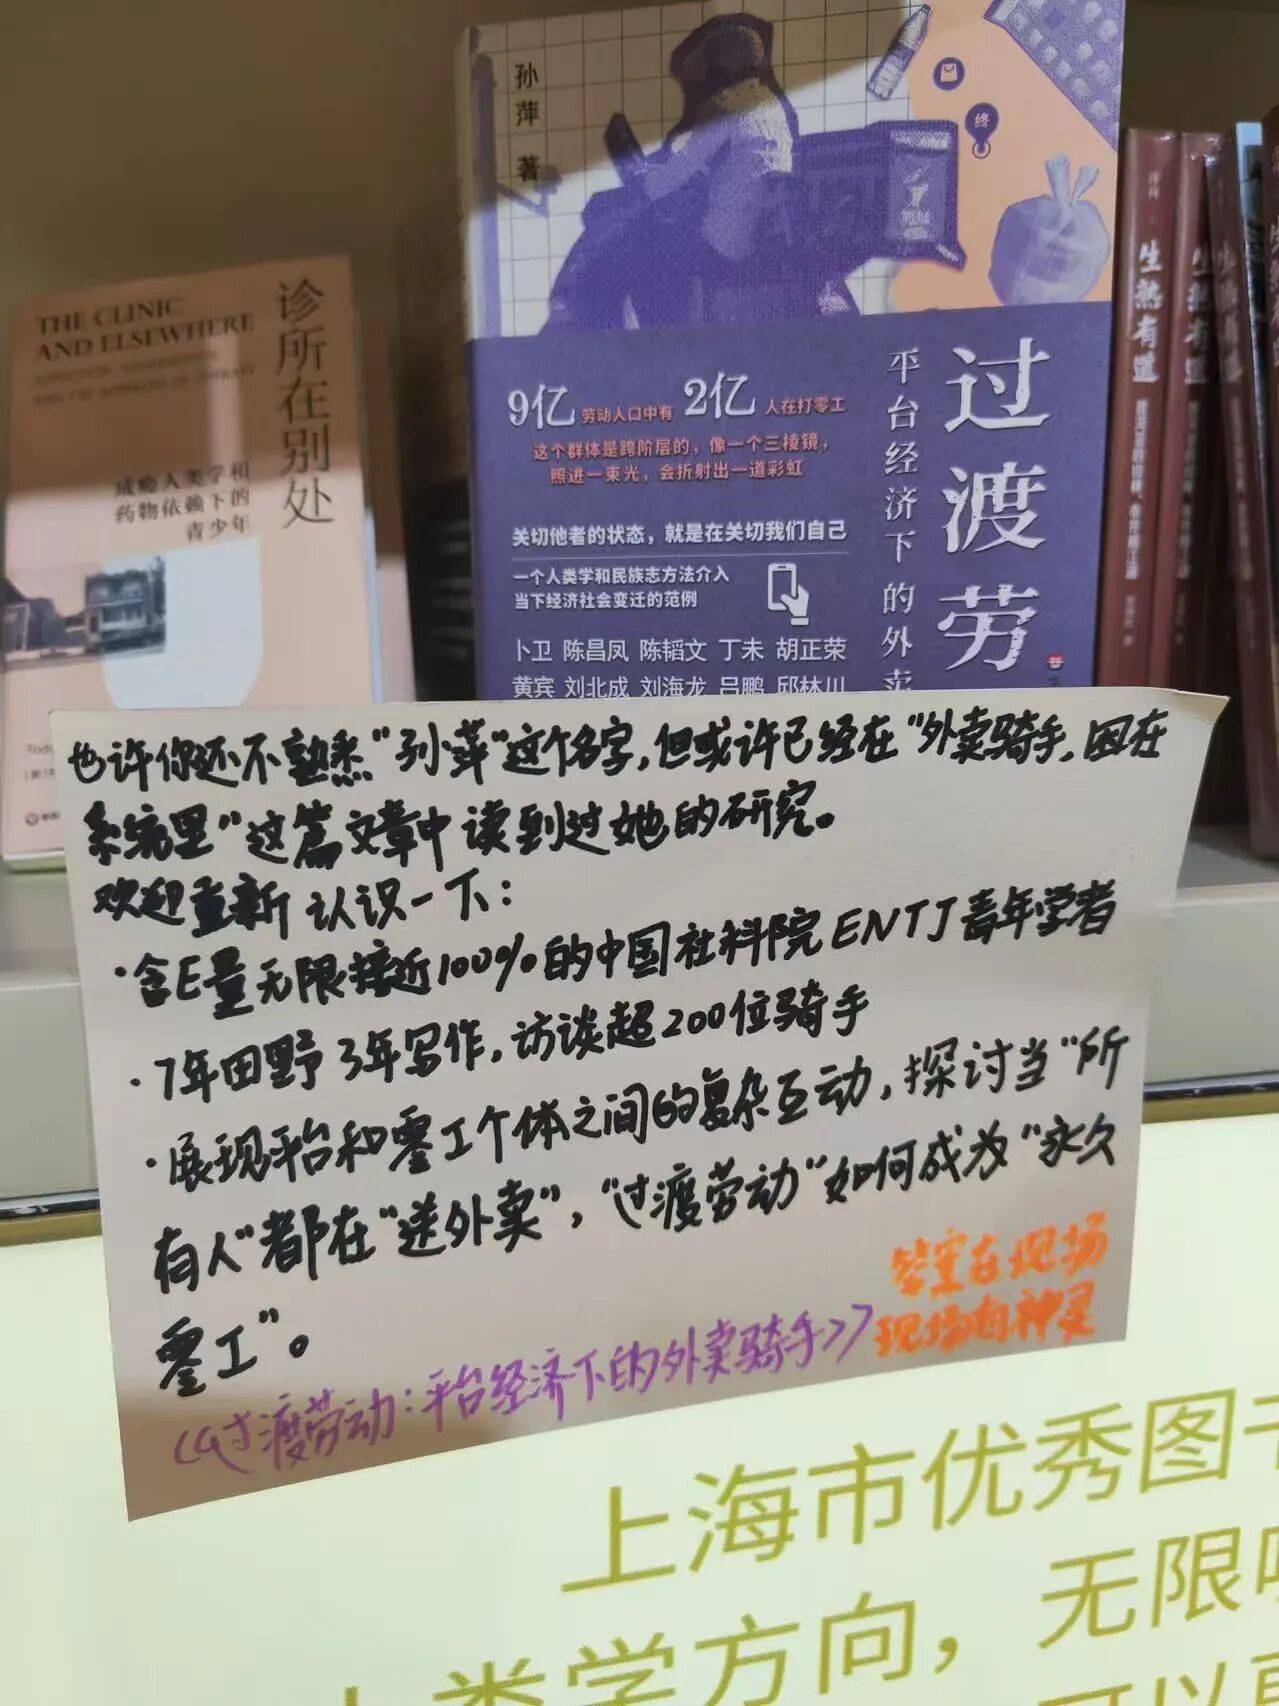 孙萍 著
终
过渡劳
平台经济下的外卖
9亿 劳动人口中有 2亿 人在打零工
这个群体是跨阶层的，像一个三棱镜，
照进一束光，会折射出一道彩虹
关切他者的状态，就是在关切我们自己
一个人类学和民族志方法介入
当下经济社会变迁的范例
卜卫 陈昌凤 陈韬文 丁未 胡正荣
黄宾 刘北成 刘海龙 吕鹏 邱林川
THE CLINIC
AND ELSEWHERE
诊所在别处
成瘾人类学和
药物依赖下的
青少年
生熟有道
生熟有道
也许你还不熟悉“孙萍”这个名字，但或许已经在“外卖骑手，困在
系统里”这篇文章中读到过她的研究。
欢迎重新认识一下：
·含E量无限接近100%的中国社科院ENTJ青年学者
·7年田野3年写作，访谈超200位骑手
·展现平台和零工个体之间的复杂互动，探讨当“所
有人”都在“送外卖”，“过渡劳动”如何成为“永久
零工”。
《过渡劳动：平台经济下的外卖骑手》
答案在现场
现场有神灵
上海市优秀图
类学方向，无限
可以